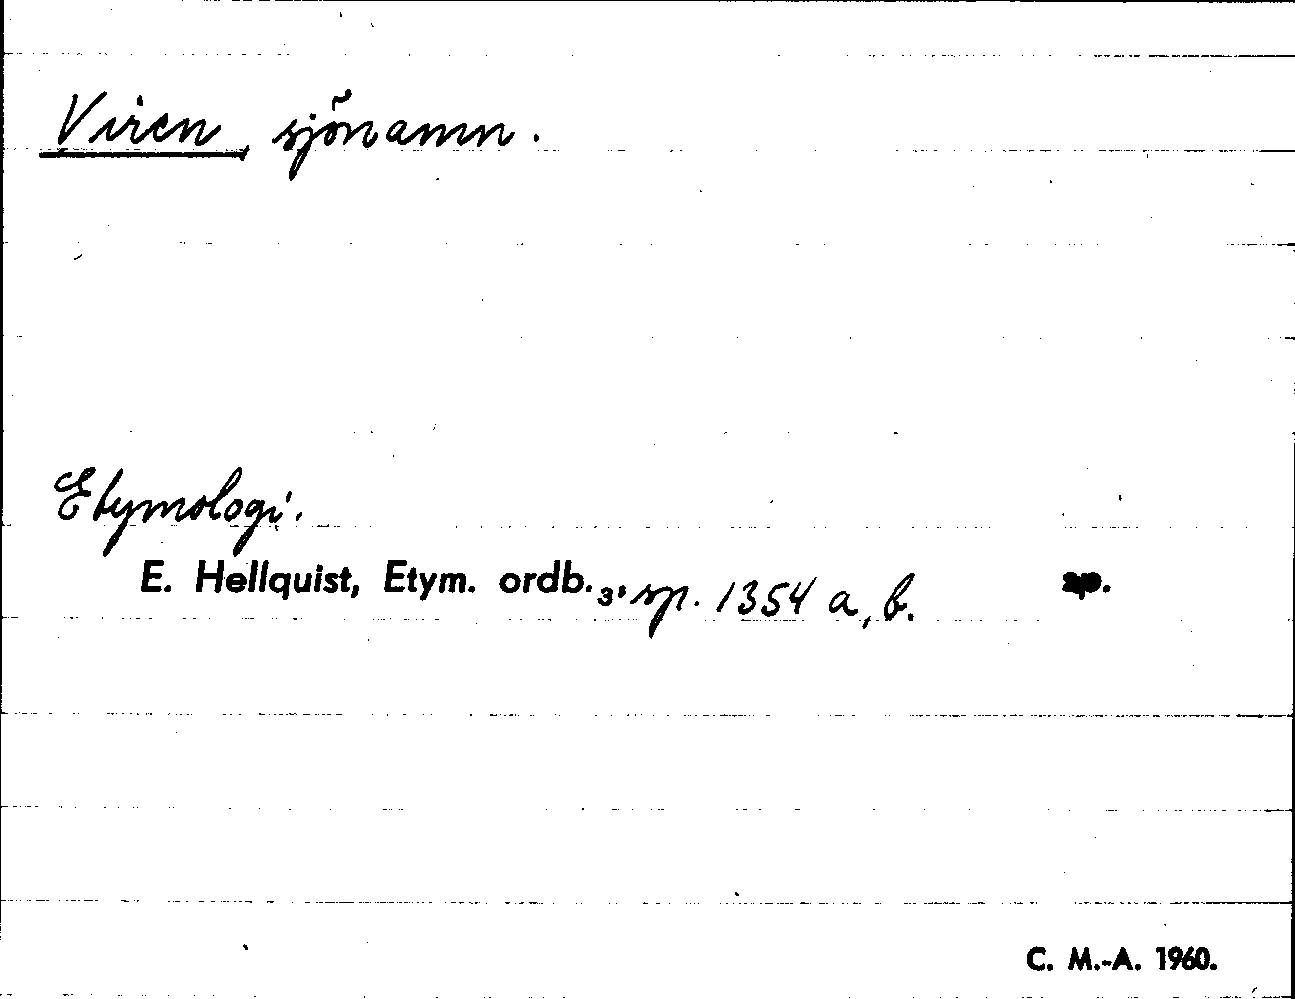 Viren, sjönamn.
Etymologi.
E. Hellquist, Etym. ordb.₃, sp. 1354 a, b. sp.
C. M.-A. 1960.